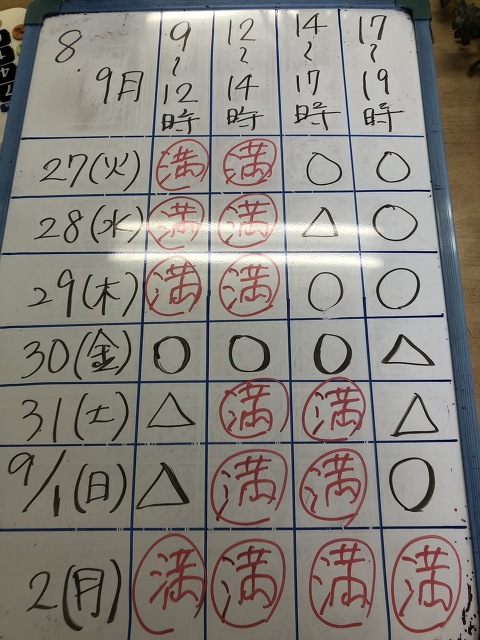 8 9月 9~12時 12~14時 14~17時 17~19時
27(火) 満 満 ○ ○
28(水) 満 満 △ ○
29(木) 満 満 ○ ○
30(金) ○ ○ ○ △
31(土) △ 満 満 △
9/1(日) △ 満 満 ○
2(月) 満 満 満 満